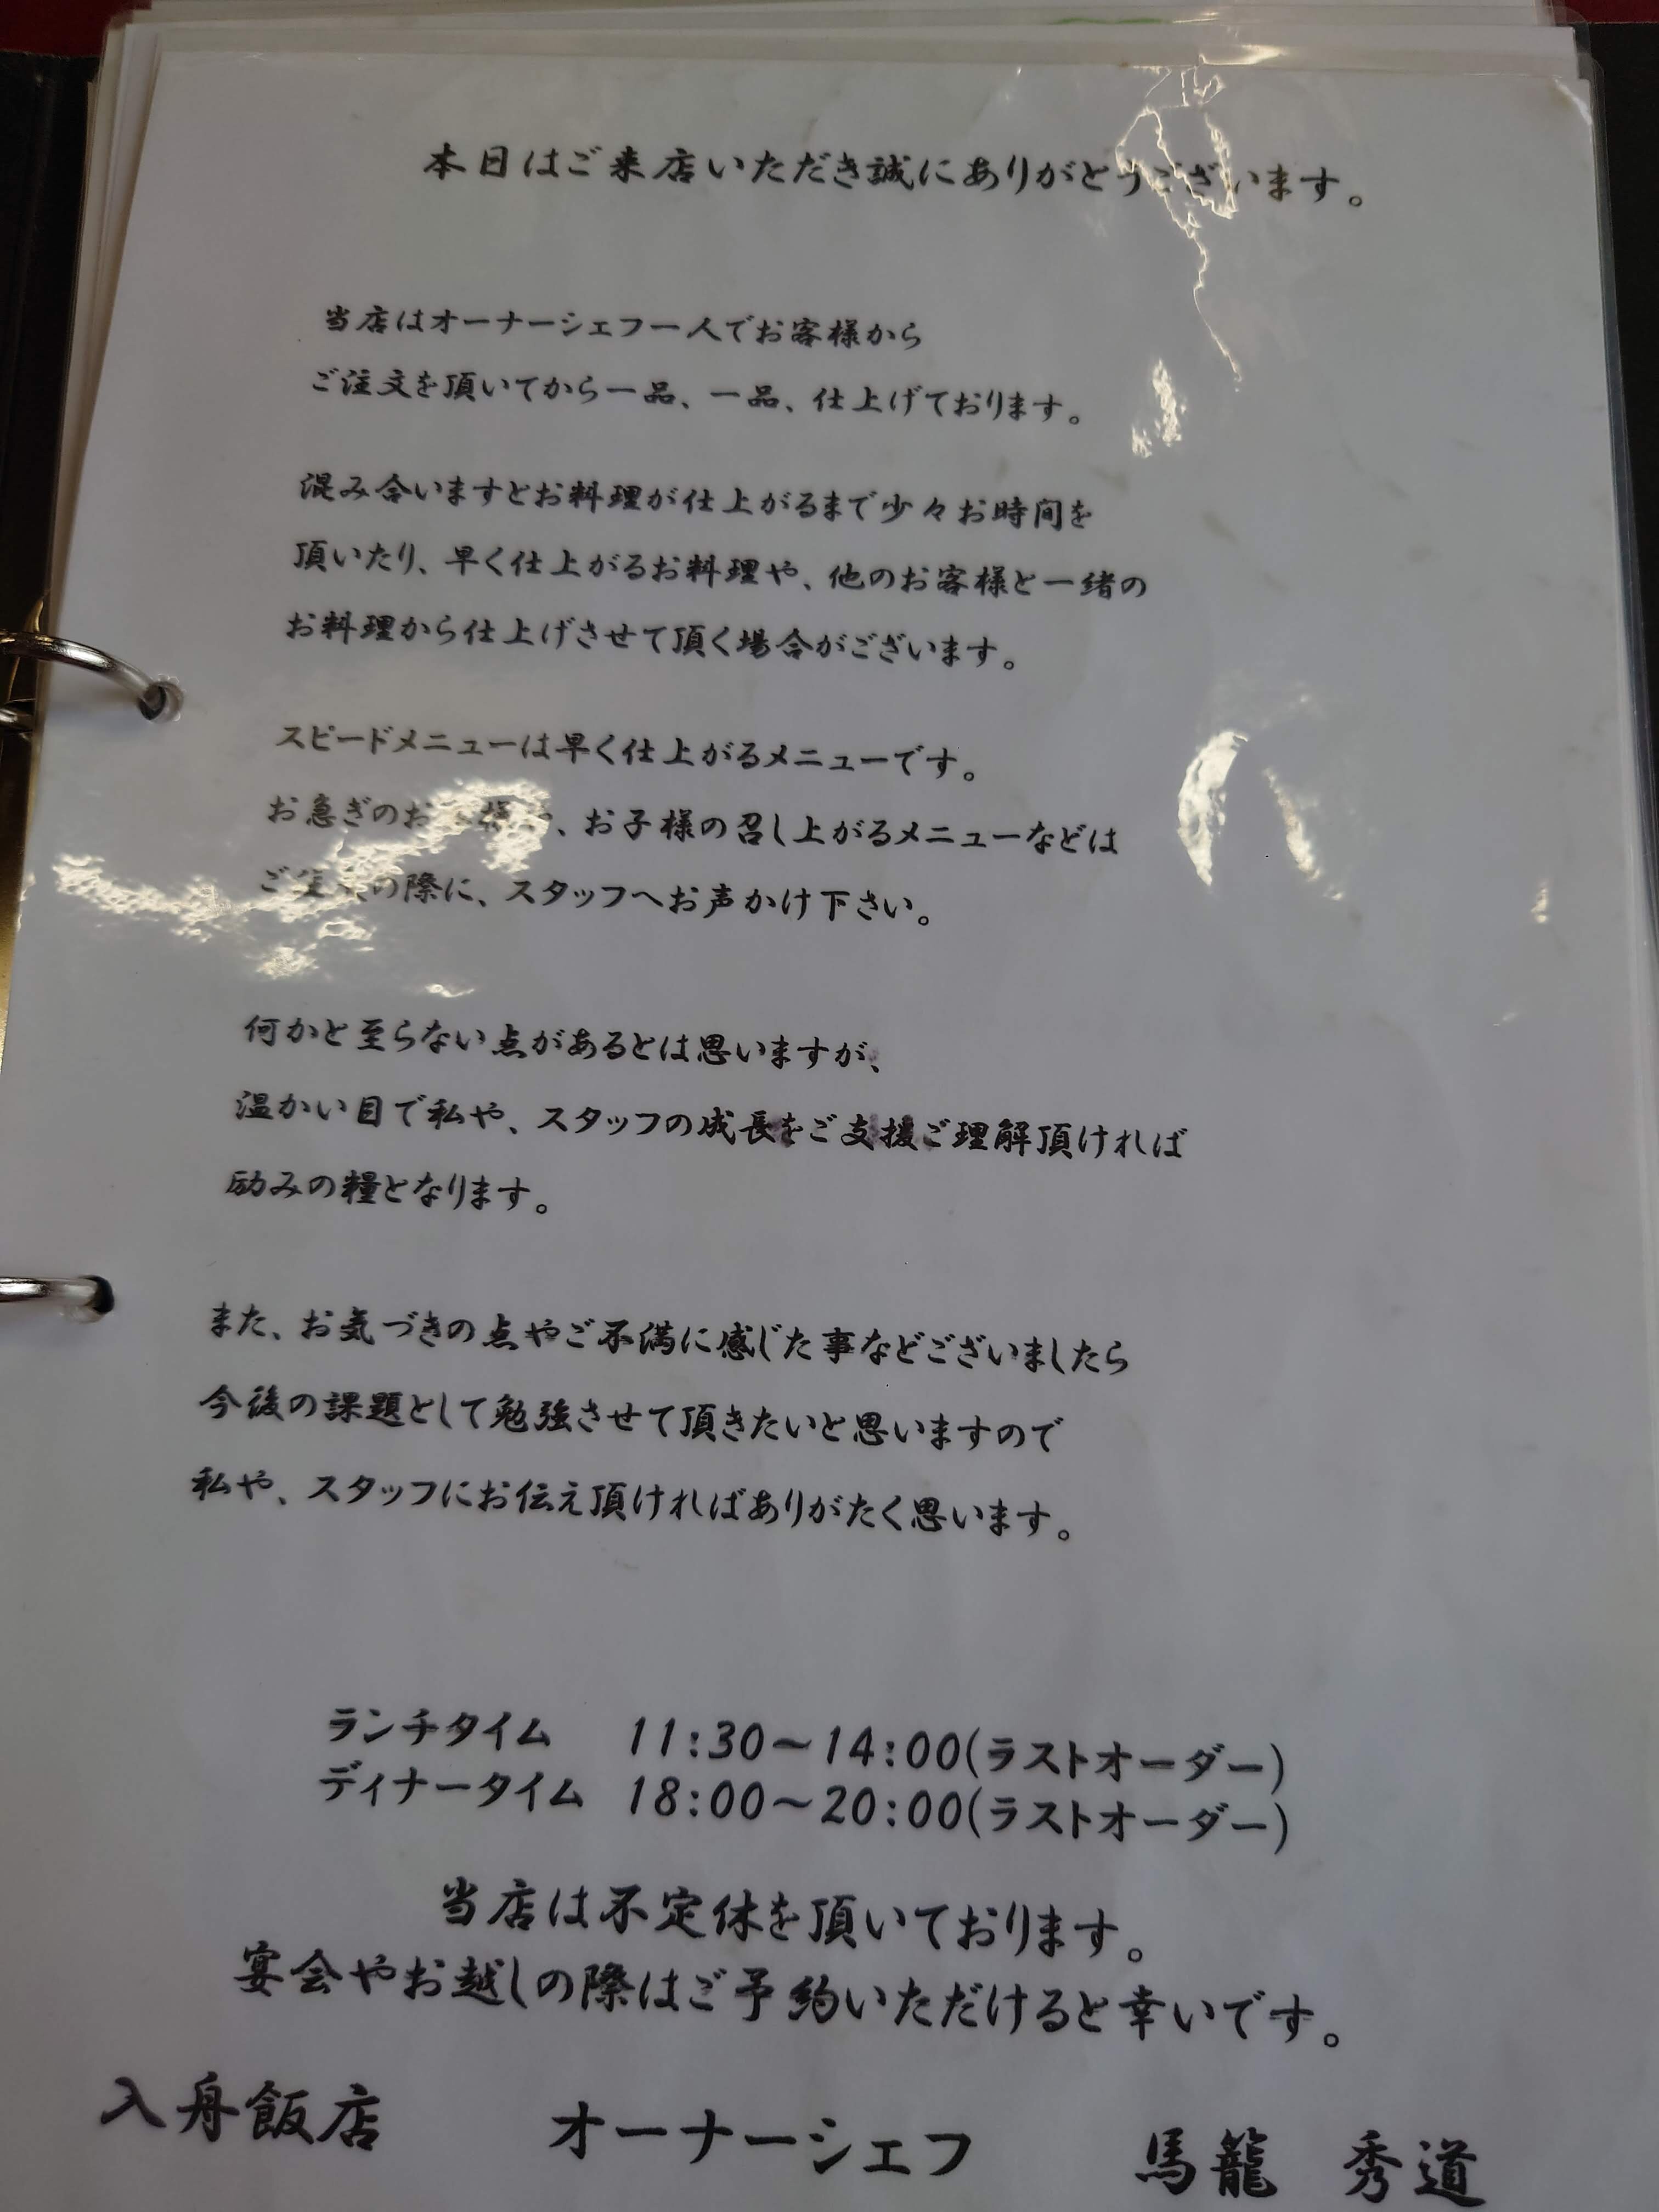 本日はご来店いただき誠にありがとうございます。
当店はオーナーシェフ一人でお客様から
ご注文を頂いてから一品、一品、仕上げております。
混み合いますとお料理が仕上がるまで少々お時間を
頂いたり、早く仕上がるお料理や、他のお客様と一緒の
お料理から仕上げさせて頂く場合がございます。
スピードメニューは早く仕上がるメニューです。
お急ぎのお客様や、お子様の召し上がるメニューなどは
ご注文の際に、スタッフへお声かけ下さい。
何かと至らない点があるとは思いますが、
温かい目で私や、スタッフの成長をご支援ご理解頂ければ
励みの糧となります。
また、お気づきの点やご不満に感じた事などございましたら
今後の課題として勉強させて頂きたいと思いますので
私や、スタッフにお伝え頂ければありがたく思います。
ランチタイム 11:30～14:00(ラストオーダー)
ディナータイム 18:00～20:00(ラストオーダー)
当店は不定休を頂いております。
宴会やお越しの際はご予約いただけると幸いです。
入舟飯店 オーナーシェフ 馬籠 秀道